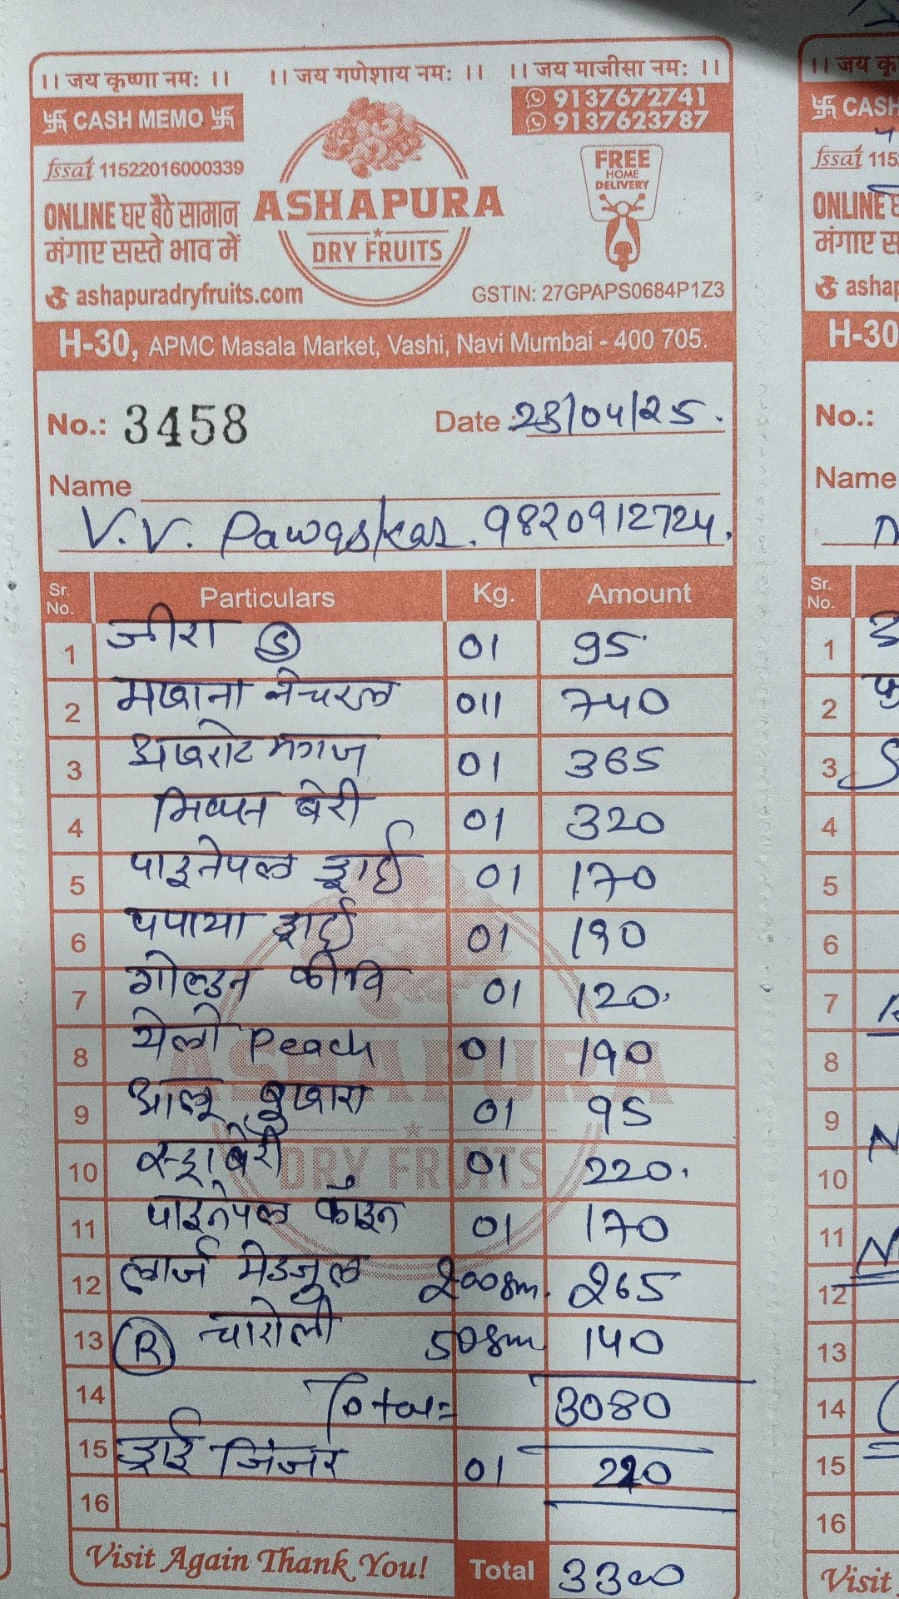 ।। जय कृष्णा नमः ।। ।। जय गणेशाय नमः ।। ।। जय माजीसा नमः ।।
卐 CASH MEMO 卐
9137672741
9137623787
fssai 11522016000339
FREE
HOME
DELIVERY
ONLINE घर बैठे सामान
मंगाए सस्ते भाव में
ASHAPURA
DRY FRUITS
ashapuradryfruits.com
GSTIN: 27GPAPS0684P1Z3
H-30, APMC Masala Market, Vashi, Navi Mumbai - 400 705.
No.: 3458 Date: 28/04/25.
Name
V.V. Pawaskar. 9820912724.
Sr. No. Particulars Kg. Amount
1 जीरा (S) 01 95
2 मखाना नेचरल 011 740
3 अखरोट मगज 01 365
4 मिक्स बेरी 01 320
5 पाइनेपल ड्राई 01 170
6 पपाया ड्राई 01 190
7 गोल्डन कीवि 01 120.
8 येलो Peach 01 190
9 आलू बुखारा 01 95
10 स्ट्रॉबेरी 01 220.
11 पाइनेपल कॉइन 01 170
12 लार्ज मेडजुल 200gm. 265
13 (R) चारोली 50gm 140
14 Total= 3080
15 ड्राई जिंजर 01 220
16
Visit Again Thank You! Total 3300
ASHAPURA
DRY FRUITS
।। जय कृ
卐 CASH
fssai 115
ONLINE
मंगाए स
ashap
H-30
No.:
Name
Sr. No.
1
2
3
4
5
6
7
8
9
10
11
12
13
14
15
16
Visit